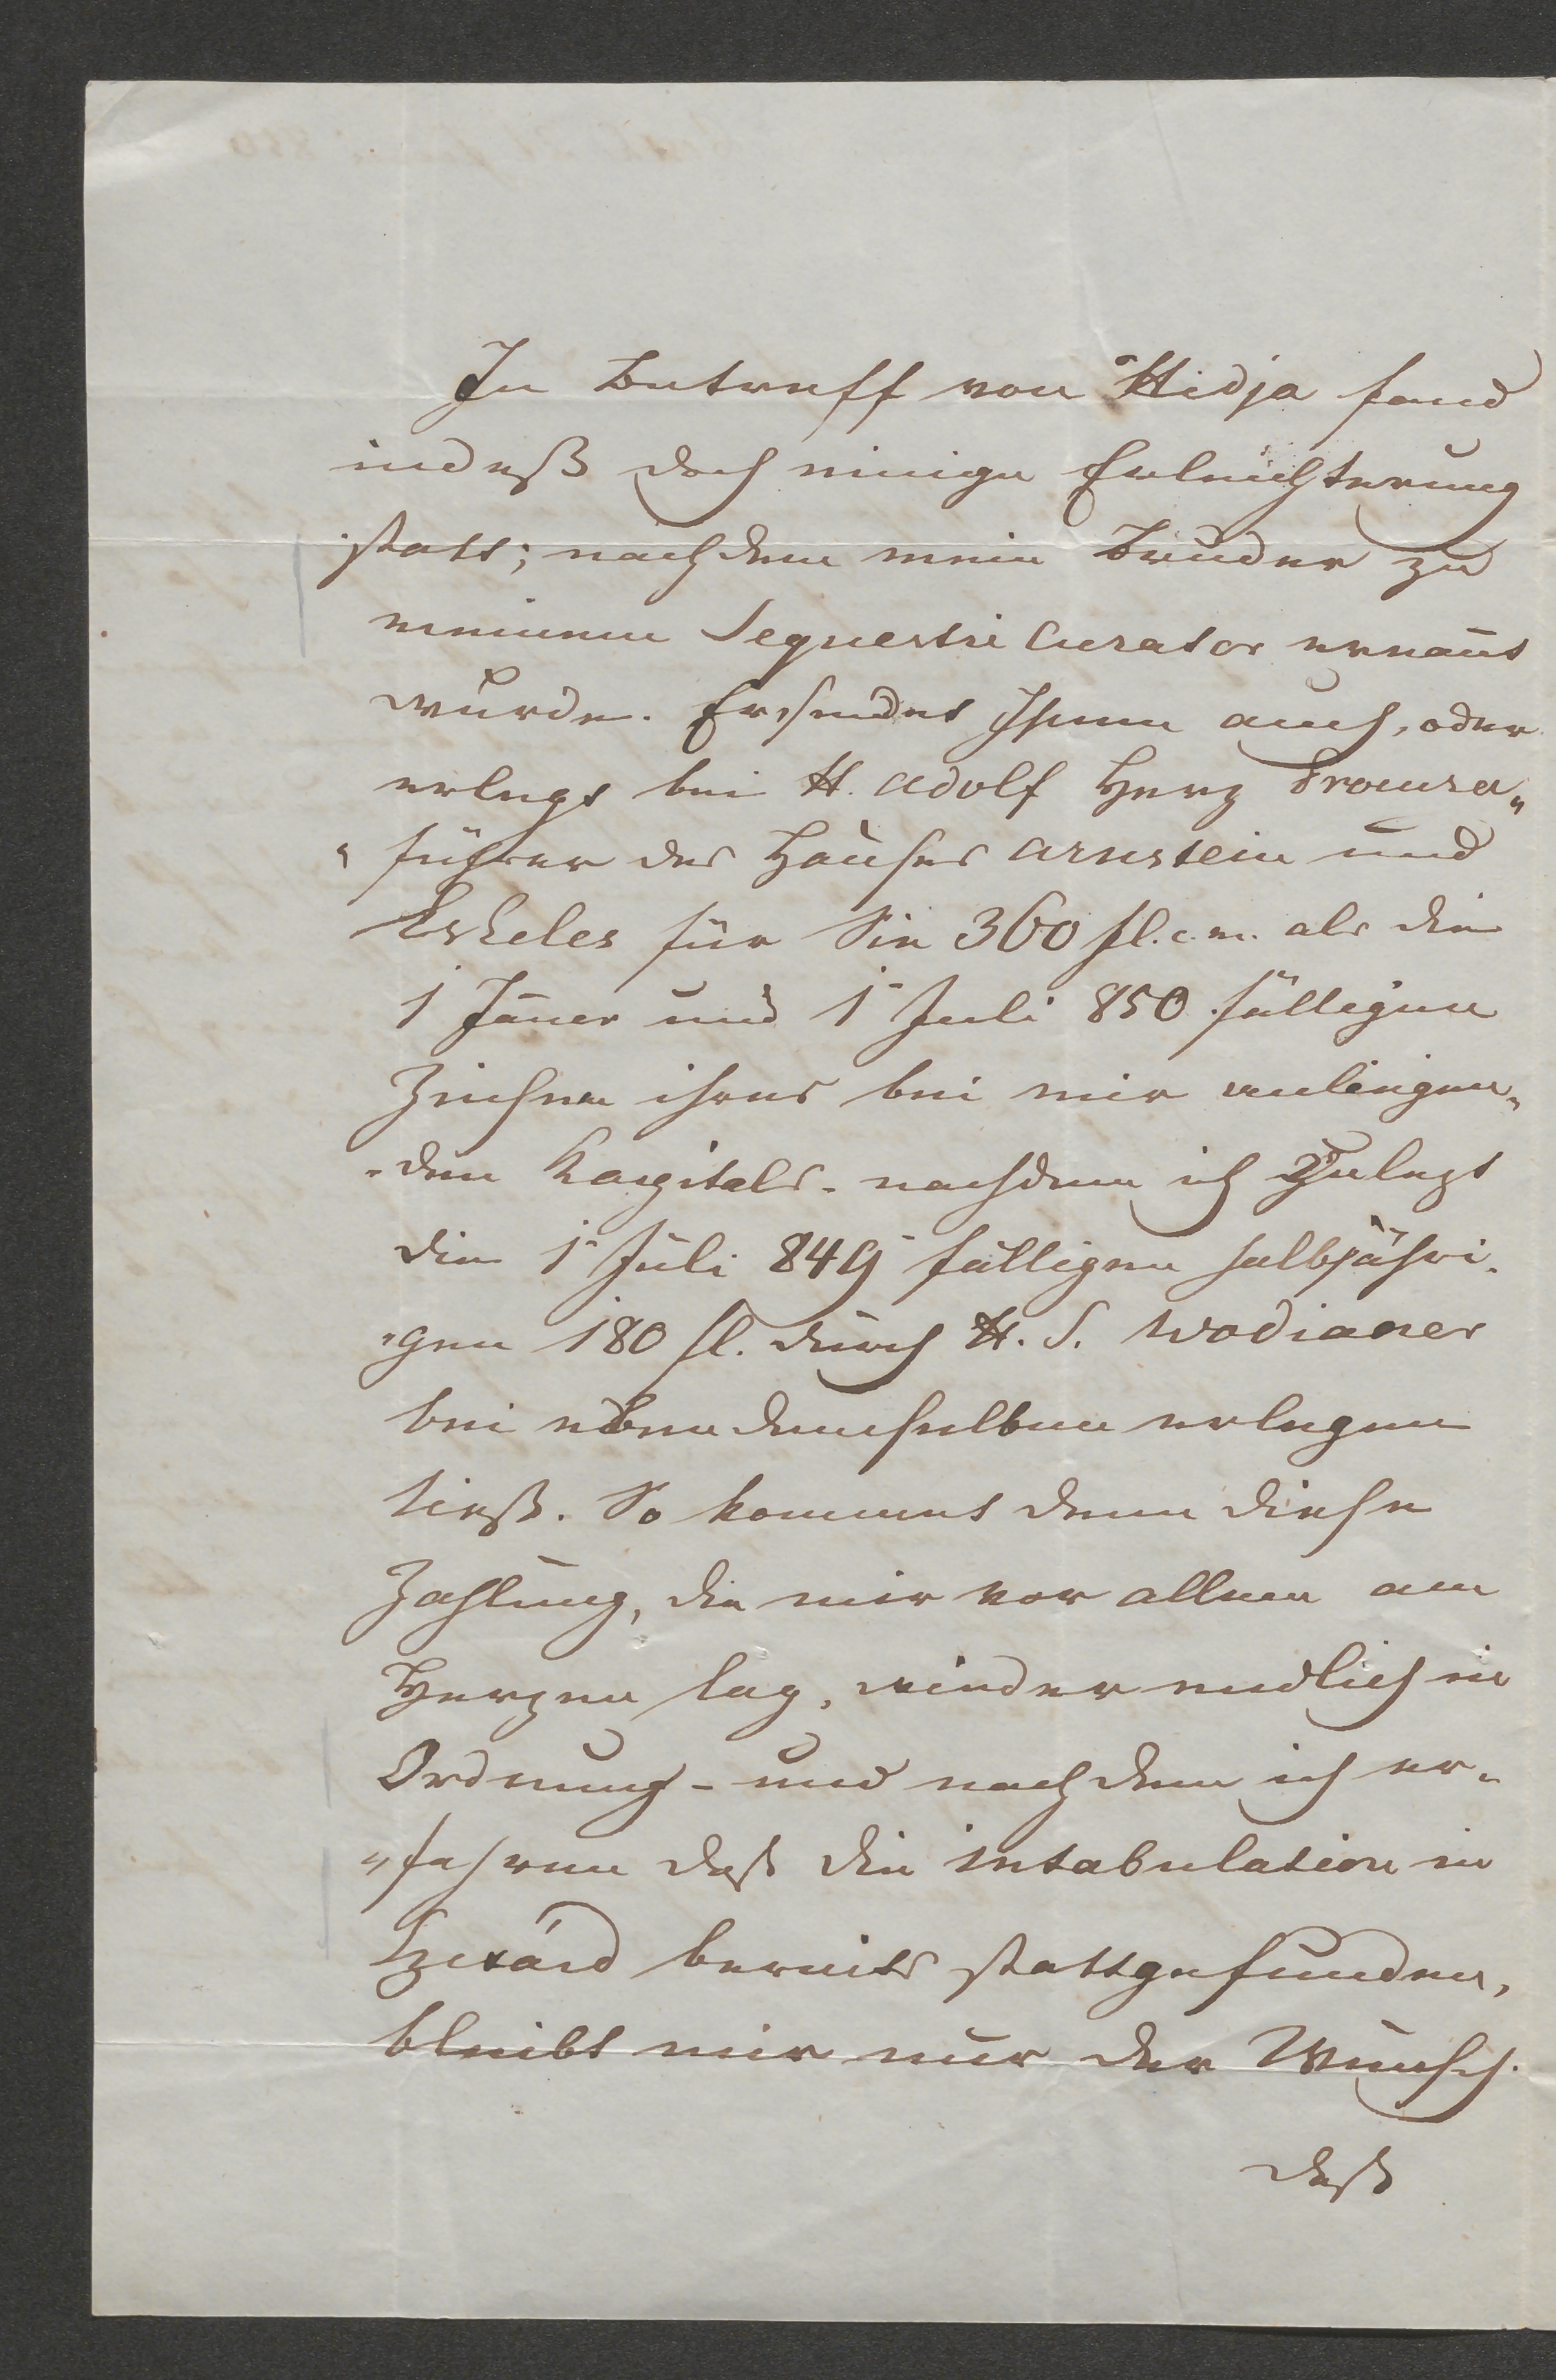 In Betreff von Hidja fand
indeß doch einige Erleichterung
statt; nachdem mein Bruder zu
meinem Sequestri Curator ernan̄t
wurde. Er sendet Ihnen auch, oder
erlegt bei H. Adolf Herz Procura„
„führer des Hauses Arnstein und
Eskeles für Sie 360 fl. c. m. als die
1 Jäner und 1 Juli 850 fälligen
Zinsen ihres bei mir anliegen„
„den Kapitals - nachdem ich zulezt
die 1 Juli 849 fälligen halbjähri„
„gen 180 fl. durch H. S. Wodianer
bei eben demselben erlegen
ließ. So kommet denn diese
Zahlung, die mir vor allem am
Herzen lag, wieder endlich in
Ordnung - und nachdem ich er„
„fahren daß die intabulation in
Szexárd bereits stattgefunden,
bleibt mir nur der Wunsch
daß